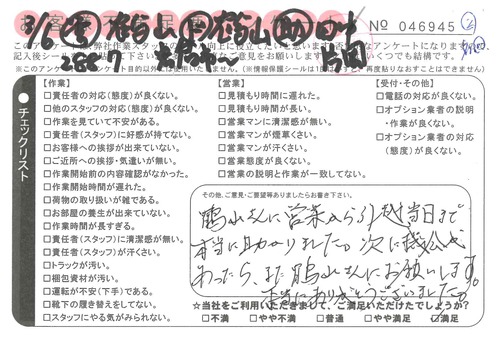 No 046945
このアンケートは、弊社作業スタッフの
【作業】
□責任者の対応(態度)が良くない。
□他のスタッフの対応(態度)が良くない。
□作業を見ていて不安がある。
□責任者(スタッフ)に好感が持てない。
□お客様への挨拶が出来ていない。
□ご近所への挨拶・気遣いが無い。
□作業開始前の内容確認がなかった。
□作業開始時間が遅れた。
□荷物の取り扱いが雑である。
□お部屋の養生が出来ていない。
□作業時間が長すぎる。
□責任者(スタッフ)に清潔感が無い。
□責任者(スタッフ)が汗くさい。
□トラックが汚い。
□梱包資材が汚い。
□運転が不安(下手)である。
□靴下の履き替えをしてない。
□スタッフにやる気がみられない。
【営業】
□見積もり時間に遅れた。
□見積もり時間が長い。
□営業マンに清潔感が無い。
□営業マンが煙草くさい。
□営業マンが汗くさい。
□営業態度が良くない。
□営業の説明と作業が一致してない。
【受付・その他】
□電話の対応が良くない。
□オプション業者の説明
・作業が良くない。
□オプション業者の対応
(態度)が良くない。
チェックリスト
その他、ご意見・ご要望等ありましたらお書き下さい。
鶴山さんに営業から引越当日まで
本当に助かりました。次に機会が
あったら、また鶴山さんにお願いします。
本当にありがとうございました。
☆当社をご利用いただきまして、ご満足いただけたでしょうか?
□不満 □やや不満 □普通 □やや満足 ☑満足